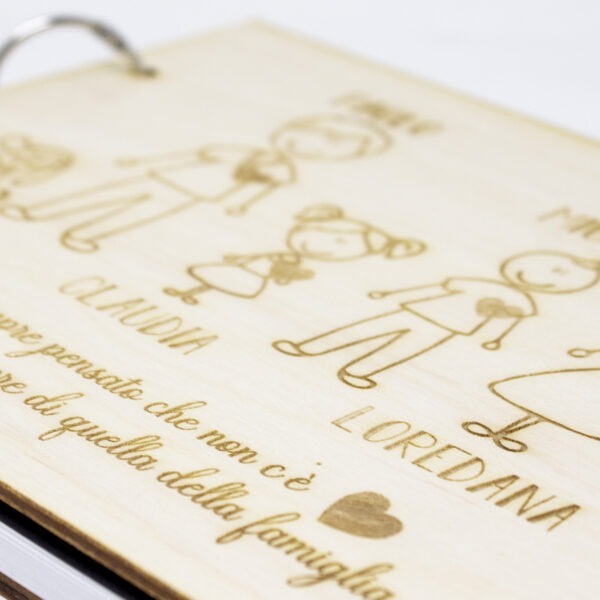 CLAUDIA
LOREDANA
pensato che non c'è
di quella della famiglia